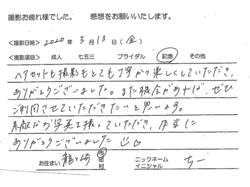 撮影お疲れ様でした。 感想をお願いいたします。
<撮影日時> 2020年 3月 13日 (金)
<撮影項目> 成人 七五三 ブライダル 記念 その他
ヘアセットも撮影もとても丁寧かつ楽しくしていただき、
ありがとうございました。また機会があれば、ぜひ
ご利用させていただきたいと思います。
素敵なお写真を撮っていただき、本当に
ありがとうございました
お住まい 市 ニックネーム イニシャル ちー